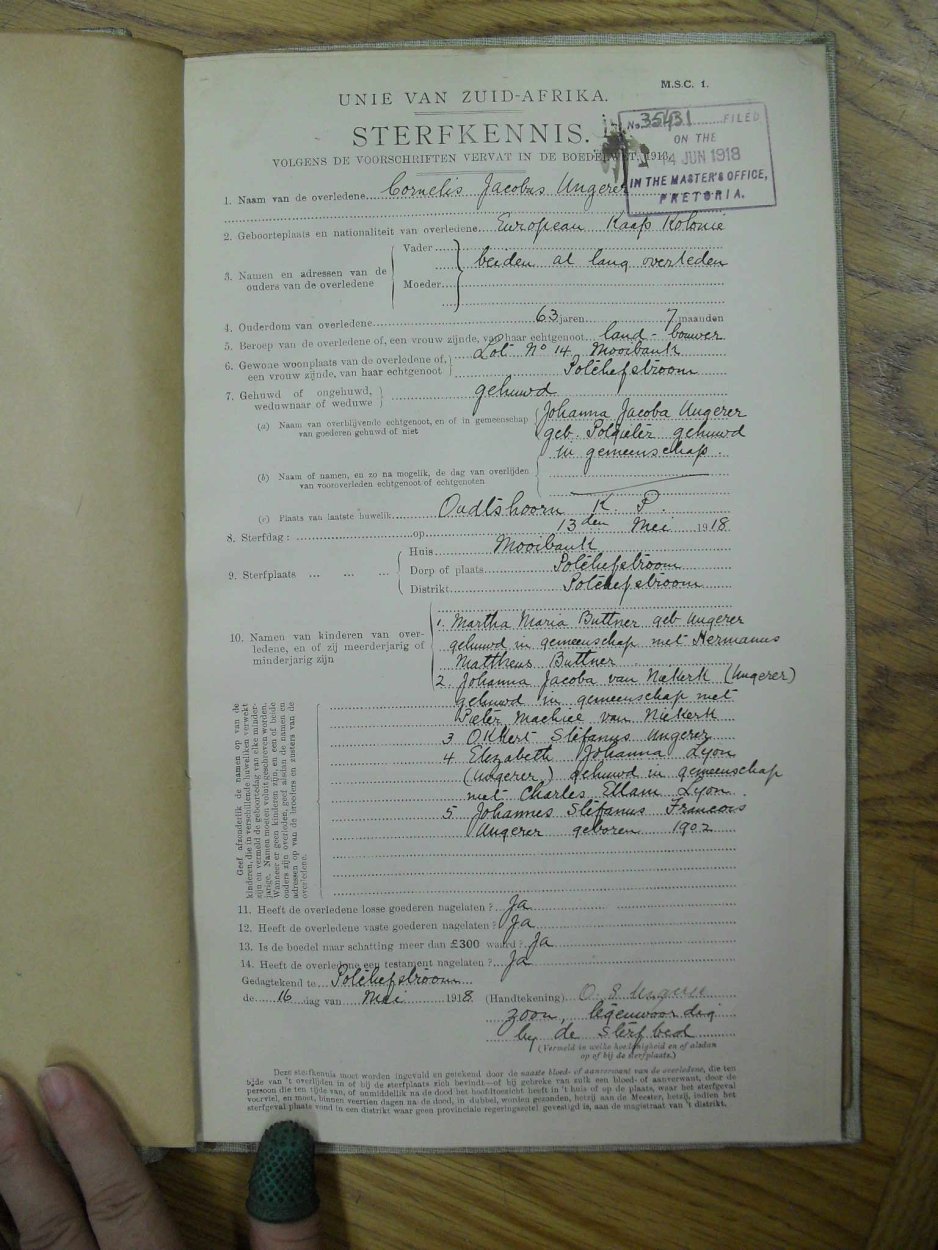 M.S.C. 1.
UNIE VAN ZUID-AFRIKA.
STERFKENNIS.
VOLGENS DE VOORSCHRIFTEN VERVAT IN DE BOEDELWET, 1913.
No. 35431 FILED
ON THE
14 JUN 1918
IN THE MASTER'S OFFICE,
PRETORIA.
1. Naam van de overledene Cornelis Jacobus Ungerer
2. Geboorteplaats en nationaliteit van overledene European Kaap Kolonie
3. Namen en adressen van de ouders van de overledene
Vader
beiden al lang overleden
Moeder
4. Ouderdom van overledene 63 jaren 7 maanden
5. Beroep van de overledene of, een vrouw zijnde, van haar echtgenoot land-bouwer
6. Gewone woonplaats van de overledene of, Lot No 14 Mooibank
een vrouw zijnde, van haar echtgenoot Potchefstroom
7. Gehuwd of ongehuwd, weduwnaar of weduwe gehuwd
(a) Naam van overblijvende echtgenoot, en of in gemeenschap Johanna Jacoba Ungerer
van goederen gehuwd of niet geb. Potgieter gehuwd
in gemeenschap.
(b) Naam of namen, en zo na mogelijk, de dag van overlijden
van vooroverleden echtgenoot of echtgenoten
(c) Plaats van laatste huwelik Oudtshoorn K. P.
8. Sterfdag: op 13den Mei 1918
9. Sterfplaats ... ... ... Huis Mooibank
Dorp of plaats Potchefstroom
Distrikt Potchefstroom
10. Namen van kinderen van over-
ledene, en of zij meerderjarig of
minderjarig zijn
1. Martha Maria Buttner geb Ungerer
gehuwd in gemeenschap met Hermanus
Mattheus Buttner
2. Johanna Jacoba van Niekerk (Ungerer)
gehuwd in gemeenschap met
Pieter Machiel van Niekerk
3 Okkert Stefanus Ungerer
4 Elizabeth Johanna Lyon
(Ungerer) gehuwd in gemeenschap
met Charles Ellam Lyon.
5 Johannes Stefanus Francois
Ungerer geboren 1902
Geef afzonderlik de namen op van de
kinderen, die in verschillende huweliken verwekt
zijn en vermeld de geboortedag van elke minder-
jarige. Namen moeten voluit geschreven worden.
Wanneer er geen kinderen zijn, en een of beide
ouders zijn overleden, geef alsdan de namen en
adressen op van de broeders en zusters van de
overledene.
11. Heeft de overledene losse goederen nagelaten? Ja
12. Heeft de overledene vaste goederen nagelaten? Ja
13. Is de boedel naar schatting meer dan £300 waard? Ja
14. Heeft de overledene een testament nagelaten? Ja
Gedagtekend te Potchefstroom
de 16 dag van Mei 1918 (Handtekening) O. S. Ungerer
zoon, tegenwoordig
by de sterfbed
(Vermeld in welke hoedanigheid en of alsdan
op of bij de sterfplaats.)
Deze sterfkennis moet worden ingevuld en getekend door de naaste bloed- of aanverwant van de overledene, die ten
tijde van 't overlijden in of bij de sterfplaats zich bevindt—of bij gebreke van zulk een bloed- of aanverwant, door de
persoon die ten tijde van, of onmiddellik na de dood het hoofdtoezicht heeft in 't huis of op de plaats, waar het sterfgeval
voorviel, en moet, binnen veertien dagen na de dood, in dubbel, worden gezonden, hetzij aan de Meester, hetzij, indien het
sterfgeval plaats vond in een distrikt waar geen provinciale regeringszetel gevestigd is, aan de magistraat van 't distrikt.